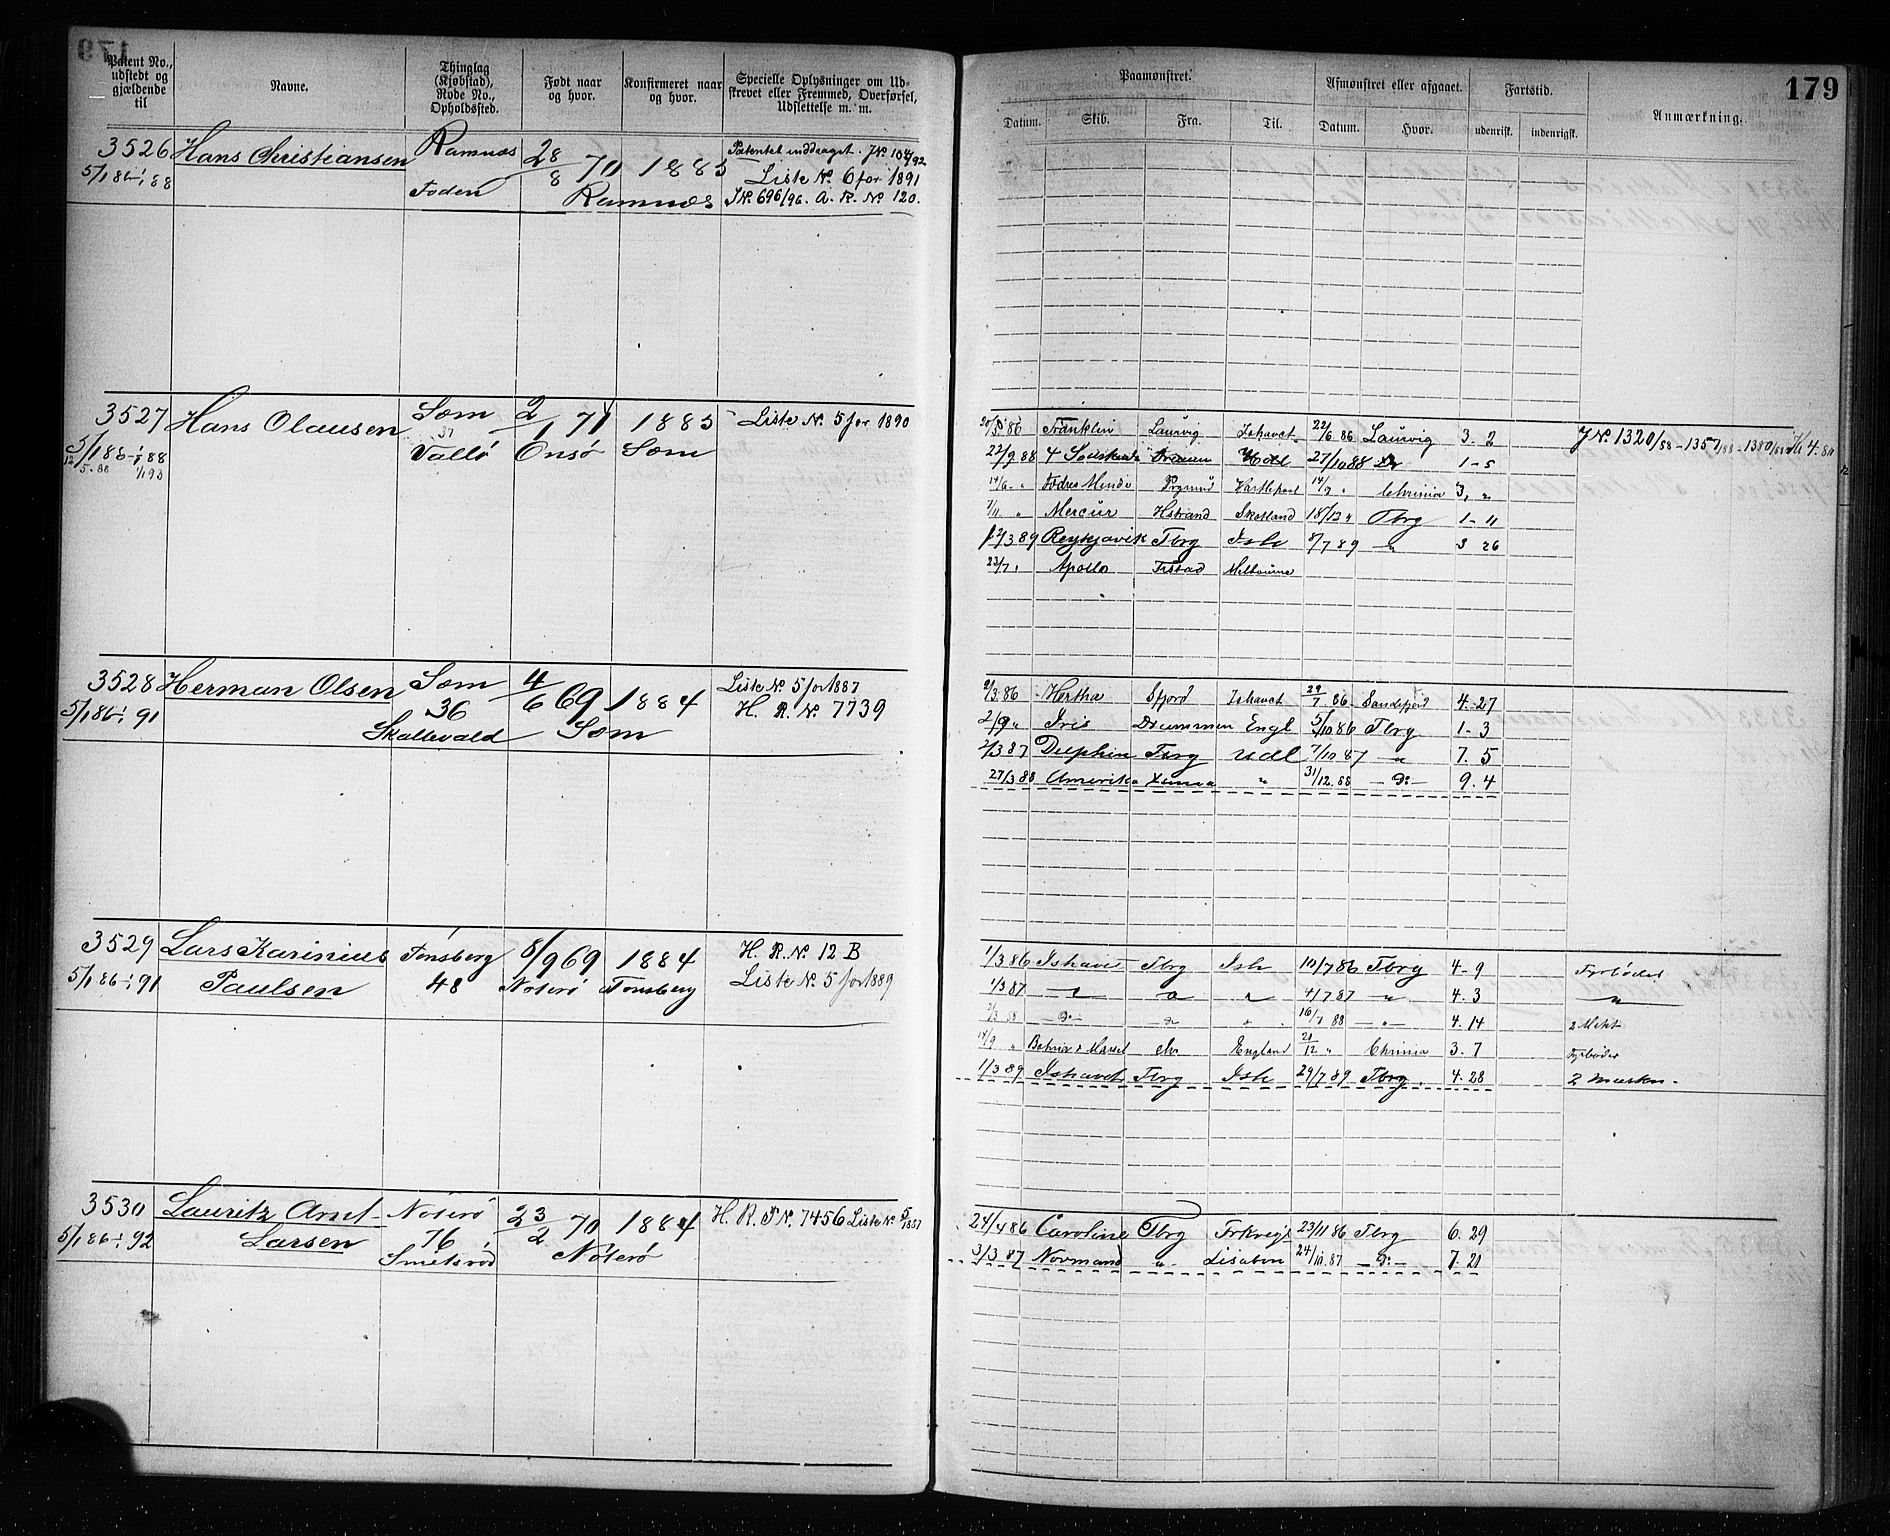 179
Patent No., udstedt og gjældende til
Navne.
Thinglag (Kjøbstad), Rode No., Opholdssted.
Født naar og hvor.
Konfirmeret naar og hvor.
Specielle Oplysninger om Udskrevet eller Fremmed, Overførsel, Udslettelse m. m.
Paamønstret.
Afmønstret eller afgaaet.
Fartstid.
Anmærkning.
Datum. Skib. Fra. Til. Datum. Hvor. udenrigsk. indenrigsk.
3526 Hans Christiansen Ramnæs 28/8 70 1885 Patentet inddraget. J.No. 104/92
5/1 86-1/1 88 Foden Ramnæs Liste No. 6 for 1891
J.No. 696/96. A. R. No. 120.
3527 Hans Olausen Sæm 2/1 71 1885 Liste No. 5 for 1890
5/1 86-1/1 88 37 Vallø Onsø Sæm
12/5.88 1/1 93
20/3 86 Franklin Laurvig Ishavet 22/6.86 Laurvig 3. 2 J No. 1320/88 - 1357/88 - 1380/88
22/9.88 4 Sødskende Drammen Udl 27/10 88 Do 1-5
14/6 " Mendo Hartlepool 14/9 " Chrinia 3, "
7/11 " Mercur Hstrand Skotland 18/12 " Tbrg 1-11
12/3 89 Reykjavik Tbrg Ish 8/7 89 " 3 26
23/7 " Apollo Frstad Melbourne
3528 Herman Olsen Sæm 4/6 69 1884 Liste No. 5 for 1887
5/1 86-1/1 91 36 Skallevald Sæm H. R. No. 7739
2/3.86 Hertha Sfjord Ishavet 29/7 86 Sandefjord 4-27
2/9 " Iris Drammen Engl 5/10 86 Tbrg 1-3
2/3 87 Delphin Tbrg Udl 7/10 87 " 7. 5
27/3 88 Amerika " 31/12.88 -Do- 9. 4
3529 Lars Karinius Tønsberg 8/9 69 1884 H. R. No. 12 B
5/1 86-1/1 91 Paulsen 48 Nøterø Tønsberg Liste No. 5 for 1889
1/3.86 Ishavet Tbrg Ish 10/7 86 Tbrg 4-9 Fyrbøder
1/3 87 " " " 4/7 87 " 4. 3 "
2/3 88 -Do- " " 16/7 88 -"- 4. 14 2 Mskt
14/9 " Chr England 21/12 " Chrinia 3. 7 Fyrbøder
1/3 89 Ishavet Tbrg Ish 29/7 89 Tbrg. 4. 28 2 maskn.
3530 Lauritz Arnt Nøterø 23/2 70 1884 H. R. No. 7456 Liste No. 5/1887
5/1 86-1/1 92 Larsen 76 Smidsrød Nøterø
24/4 86 Caroline Tbrg Frkrvig 23/11 86 Tbrg 6. 29
3/3.87 Normand " Lisabon 24/10.87 -Do- 7. 21